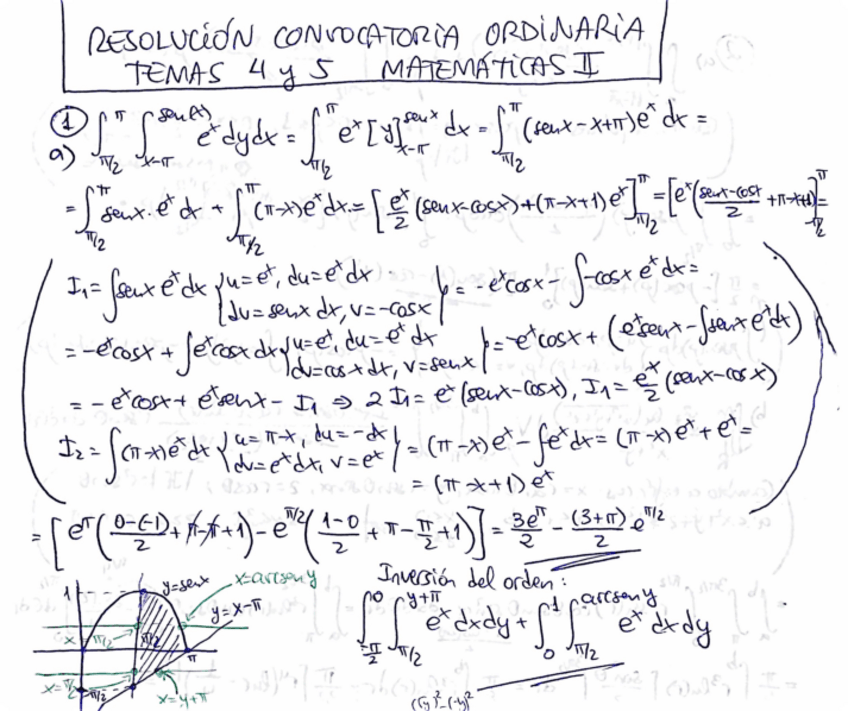 RESOLUCIÓN CONVOCATORIA ORDINARIA
TEMAS 4 y 5 MATEMÁTICAS II
① a) ∫_{π/2}^{π} ∫_{x-π}^{sen(x)} e^x dy dx = ∫_{π/2}^{π} e^x [y]_{x-π}^{sen x} dx = ∫_{π/2}^{π} (sen x - x + π) e^x dx =
= ∫_{π/2}^{π} sen x · e^x dx + ∫_{π/2}^{π} (π-x) e^x dx = [e^x/2 (sen x - cos x) + (π-x+1) e^x]_{π/2}^{π} = [e^x ((sen x - cos x)/2 + π-x+1)]_{π/2}^{π} =
I₁ = ∫ sen x e^x dx { u = e^x, du = e^x dx / dv = sen x dx, v = -cos x } = -e^x cos x - ∫ -cos x e^x dx =
= -e^x cos x + ∫ e^x cos x dx { u = e^x, du = e^x dx / dv = cos x dx, v = sen x } = -e^x cos x + (e^x sen x - ∫ sen x e^x dx)
= -e^x cos x + e^x sen x - I₁ ⇒ 2 I₁ = e^x (sen x - cos x), I₁ = e^x/2 (sen x - cos x)
I₂ = ∫ (π-x) e^x dx { u = π-x, du = -dx / dv = e^x dx, v = e^x } = (π-x) e^x - ∫ e^x dx = (π-x) e^x + e^x =
= (π-x+1) e^x
= [e^π ((0-(-1))/2 + π-π+1) - e^{π/2} ((1-0)/2 + π - π/2 + 1)] = 3e^π/2 - (3+π)/2 e^{π/2}
Inversión del orden:
∫_{-π/2}^{0} ∫_{π/2}^{y+π} e^x dx dy + ∫_{0}^{1} ∫_{π/2}^{arcsen y} e^x dx dy
1
y = sen x
x = arcsen y
y = x-π
x = π/2
π/2
π
x = π/2
-π/2
x = y+π